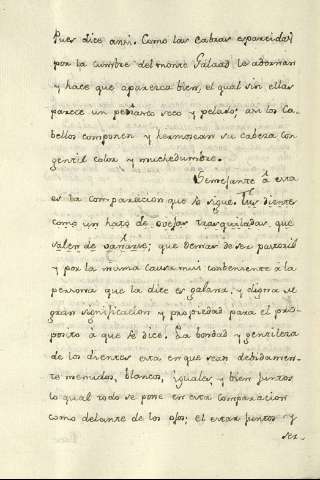 Pues dice ansi. Como las cabras esparcidas
por la cumbre del monte Galaad le adornan
y hace que aparezca bien, el qual sin ellas
parece un peñasco seco y pelado; asi los Ca-
bellos componen y hermosean su cabeza con
gentil color y muchedumbre.
Semejante á esta
es la comparacion que se sigue. Tus dientes
como un hato de ovejas trasquiladas, que
salen de vañarse; que demas de ser pastoril
y por la misma causa mui conveniente á la
persona que la dice es galana, y digna de
gran significacion y propiedad para el pro-
posito á que se dice. La bondad y gentileza
de los dientes esta en que sean debidamen-
te menudos, blancos, iguales y bien juntos
lo qual todo se pone en esta comparacion
como delante de los ojos; el estar juntos y
ser